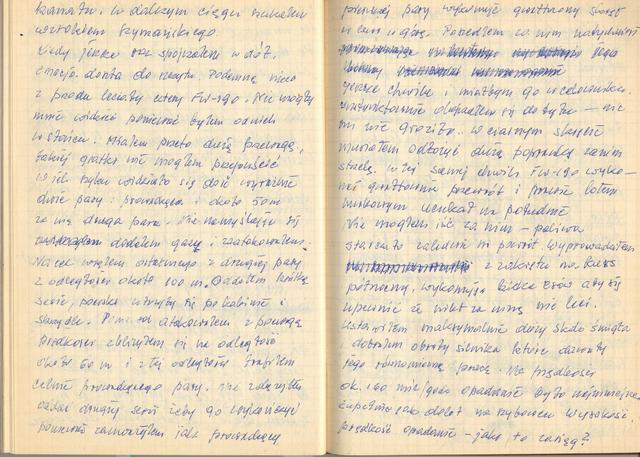 kanału. W dalszym ciągu szukałem
wzrokiem Szymańskiego.
Kiedy jeszcze raz spojrzałem w dół,
emocja doszła do zenitu. Podemną nieco
z przodu leciały cztery Fw-190. Nie mogły
mnie widzieć ponieważ byłem od nich
w słońcu. Miałem przeto dużą przewagę,
takiej gratki nie mogłem przepuścić
w ich szyku widziało się dość wyraźnie
dwie pary: prowadząca i około 50 m
za nią druga para. Nie namyślając się
dodałem gazu i zaatakowałem.
Na cel wziąłem ostatniego z drugiej pary
z odległości około 100 m. Oddałem krótką
serię, pociski utkwiły się po kabinie i
skrzydle. atakowałem z powagą
Prędkości zbliżyłem się na odległość
około 60 m i z tej odległości trafiłem
celnie prowadzącego pary. Nie zdążyłem
oddać drugiej serii żeby go wykończyć
ponieważ zauważyłem jak prowadzący
pierwszej pary wykonuje gwałtowny skręt
w lewo w górę. Poszedłem za nim natychmiast
jeszcze chwila i miałbym go w celowniku.
opadałem się do tyłu - nic
mi nie groziło. W ciasnym skręcie
musiałem odłożyć dużą poprawkę zanim
strzelę. W tej samej chwili Fw-190 wyko-
nał gwałtowny przewrót i prawie lotem
nurkowym uciekał na południe
Nie mogłem iść za nim - paliwa
starczało zaledwie na powrót. Wyprowadziłem
z zakrętu na kurs
północny, wykonując kilka esów aby się
upewnić że nikt za mną nie leci.
Ustawiłem maksymalnie duży skok śmigła
i dobrałem obroty silnika
jego równomierną pracę. Na prędkości
ok. 160 mil/godz opadanie było najmniejsze
zupełnie jak dolot na szybowcu. Wysokość
prędkość opadanie - jaki to zasięg?